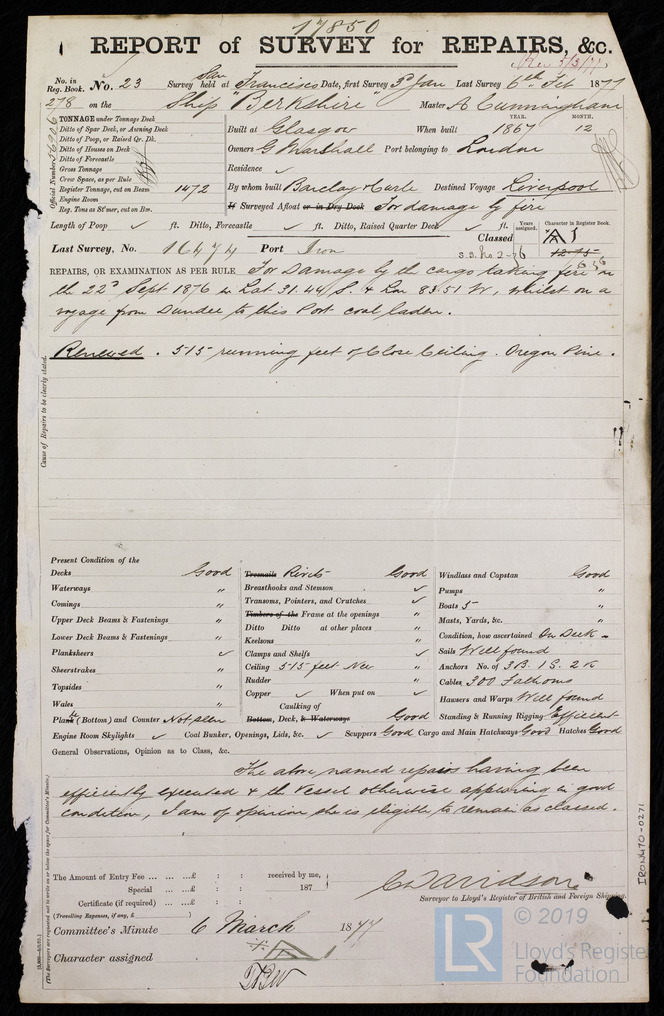 17850
REPORT OF SURVEY for REPAIRS, &c.
No. in Reg. Book. No. 23 Survey held at San Francisco Date, first Survey 3d Jan Last Survey 6th Feb 1877
278 on the Ship "Berkshire" Master A Cunningham
TONNAGE under Tonnage Deck
Ditto of Spar Deck, or Awning Deck
Ditto of Poop, or Raised Qr. Dk.
Ditto of Houses on Deck
Ditto of Forecastle
Gross Tonnage
Crew Space, as per Rule
Register Tonnage, cut on Beam 1472
Engine Room
Reg. Tons as St'mer, cut on Bm.
Official Number 56906
YEAR. MONTH.
Built at Glasgow When built 1867 12
Owners G Marshall Port belonging to London
Residence ✓
By whom built Barclay Curle Destined Voyage Liverpool
If Surveyed Afloat or in Dry Dock For damage by fire
Length of Poop ✓ ft. Ditto, Forecastle ✓ ft. Ditto, Raised Quarter Deck ✓ ft.
Years assigned. Character in Register Book.
Classed A 1
S.S. No 2-76 12-75
Last Survey, No. 16474 Port Iron
REPAIRS, OR EXAMINATION AS PER RULE For Damage by the cargo taking fire on
the 22d Sept 1876 in Lat 31.44 S. & Lon 83.51 W, whilst on a
voyage from Dundee to this Port coal laden.
Renewed. 515 running feet of Close Ceiling. Oregon Pine.
Cause of Repairs to be clearly stated.
Present Condition of the
Decks Good
Waterways "
Comings "
Upper Deck Beams & Fastenings "
Lower Deck Beams & Fastenings "
Planksheers ✓
Sheerstrakes "
Topsides "
Wales "
Plank (Bottom) and Counter Not seen
Treenails Rivets Good
Breasthooks and Stemson ✓
Transoms, Pointers, and Crutches ✓
Timbers of the Frame at the openings "
Ditto Ditto at other places "
Keelsons "
Clamps and Shelfs ✓
Ceiling 515 feet New "
Rudder "
Copper ✓ When put on ✓
Caulking of
Bottom, Deck, & Waterways Good
Windlass and Capstan Good
Pumps "
Boats 5 "
Masts, Yards, &c. "
Condition, how ascertained On Deck
Sails Well found
Anchors No. of 3 B. 1 S. 2 K
Cables 300 Fathoms
Hawsers and Warps Well found
Standing & Running Rigging Efficient
Engine Room Skylights ✓ Coal Bunker, Openings, Lids, &c. ✓ Scuppers Good Cargo and Main Hatchways Good Hatches Good
General Observations, Opinion as to Class, &c.
The above named repairs having been
efficiently executed & the vessel otherwise appearing in good
condition, I am of opinion she is eligible to remain as classed.
(The Surveyors are requested not to write on or below the space for Committee's Minute.)
The Amount of Entry Fee ... ... ...£ : : received by me,
Special ... ...£ : : 187
Certificate (if required) ... ...£ : :
(Travelling Expenses, if any, £ )
C Davidson
Surveyor to Lloyd's Register of British and Foreign Shipping.
Committee's Minute 6 March 1877
Character assigned A 1
IRON470-0271
LR
© 2019
Lloyd's Register
Foundation